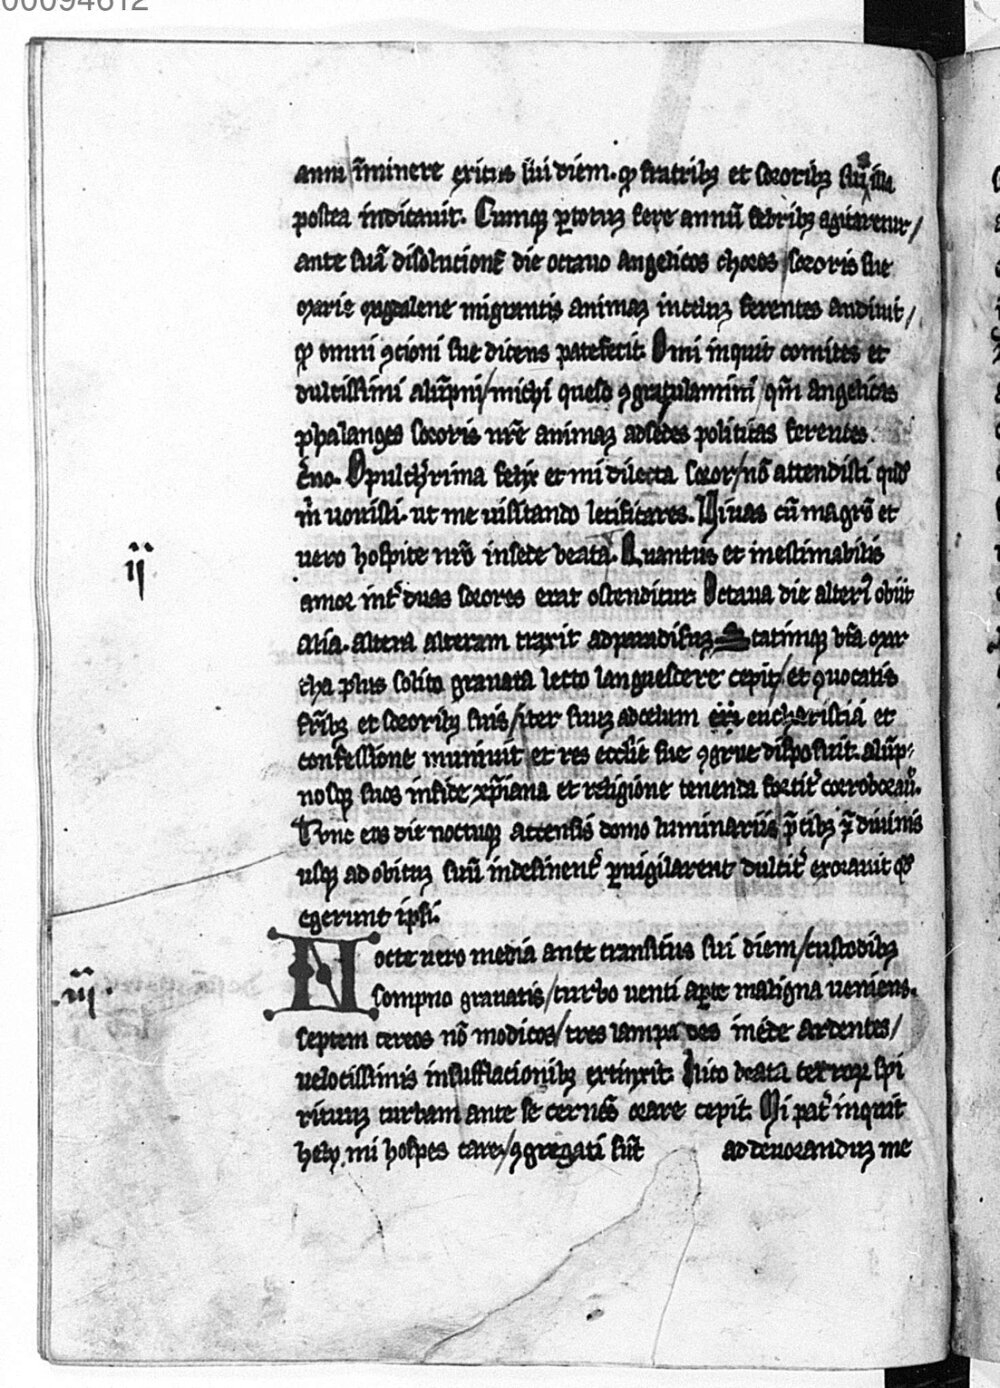 00094612
anni īminere exitus sui diem. qͥ fratribꝫ et sororibꝫ suis illa
postea indicauit. Cumqꝫ ꝑ totuꝫ fere annū febribꝫ agitaretur/
ante suā disolucionē die octauo angelicos choros sororis sue
marie magdalene migrantis animaꝫ in celuꝫ ferentes audiuit/
qͥ omni ꝯcioni sue dicens patefecit. O mi inquit comites et
dulcissimi alūpni/ michi queso ꝯgratulamini qm̄ angelicas
phalanges sororis nr̄e animaꝫ ad sedes politicas ferentes
c̄no. O pulch̓rima felix et mi dilecta soror/ nō attendisti quod
m̓ uouisti. ut me uisitando letificares. Uiuas cū magr̄o et
uero hospite nr̄o in sede beata. Quantus et inestimabilis
ij
amor int̓ duas sorores erat ostenditur. Octaua die alteri᷒ obiit
alia. altera alteram traxit ad paradisuꝫ Statimqꝫ bt̄a mar
tha plus solito grauata lecto languescere cepit/ et ꝯuocatis
fr̄ibꝫ et sororibꝫ suis/ iter suuꝫ ad celum eucharistiā et
confessione muniuit et res ecclīe sue ꝯgrue disposuit. alūp
nosqꝫ suos in fide xp̄iana et religione tenenda fortit̓ corroborau̓.
Tunc eis die noctuqꝫ accensis domo luminariis p̄cibꝫ diuinis
usqꝫ ad obituꝫ suū indesinent̓ ꝑuigilarent dulcit̓ exorauit qͦd
egerunt ipsi.
Nocte uero media ante transitus sui diem/ custodibꝫ
.iij.
sompno grauatis/ turbo uenti aꝑte maligna ueniens.
septem cereos nō modicos/ tres lampades in ede ardentes/
uelocissimis insufflacionibꝫ extinxit. Ilico beata terroꝝ spi
rituuꝫ turbam ante se cernēs orare cepit. Mi pat̓ inquit
hely. mi hospes care/ ꝯgregati sūt ad deuoranduꝫ me